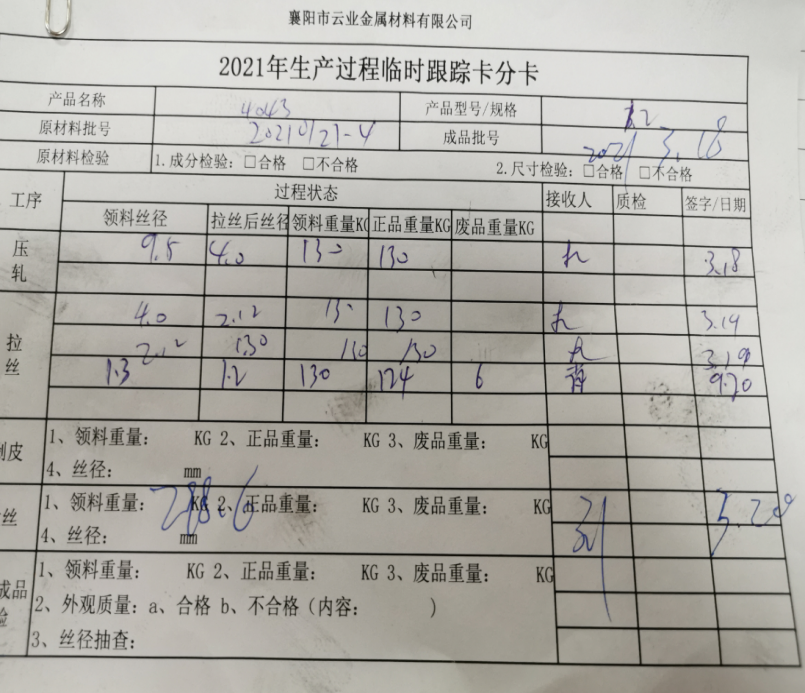 襄阳市云业金属材料有限公司
2021年生产过程临时跟踪卡分卡
产品名称 4043 产品型号/规格 1.2
原材料批号 20210121-4 成品批号 2021 3.18
原材料检验 1.成分检验: □合格 □不合格 2.尺寸检验: □合格 □不合格
工序 过程状态 接收人 质检 签字/日期
领料丝径 拉丝后丝径 领料重量KG 正品重量KG 废品重量KG
压轧 9.5 4.0 130 130 3.18
拉丝 4.0 2.12 130 130 3.19
2.12 1.30 130 130 3.19
1.3 1.2 130 124 6 9.20
削皮 1、领料重量: KG 2、正品重量: KG 3、废品重量: KG
4、丝径: mm
丝 1、领料重量: KG 2、正品重量: KG 3、废品重量: KG
4、丝径: mm
成品检 1、领料重量: KG 2、正品重量: KG 3、废品重量: KG
2、外观质量: a、合格 b、不合格(内容: )
3、丝径抽查: